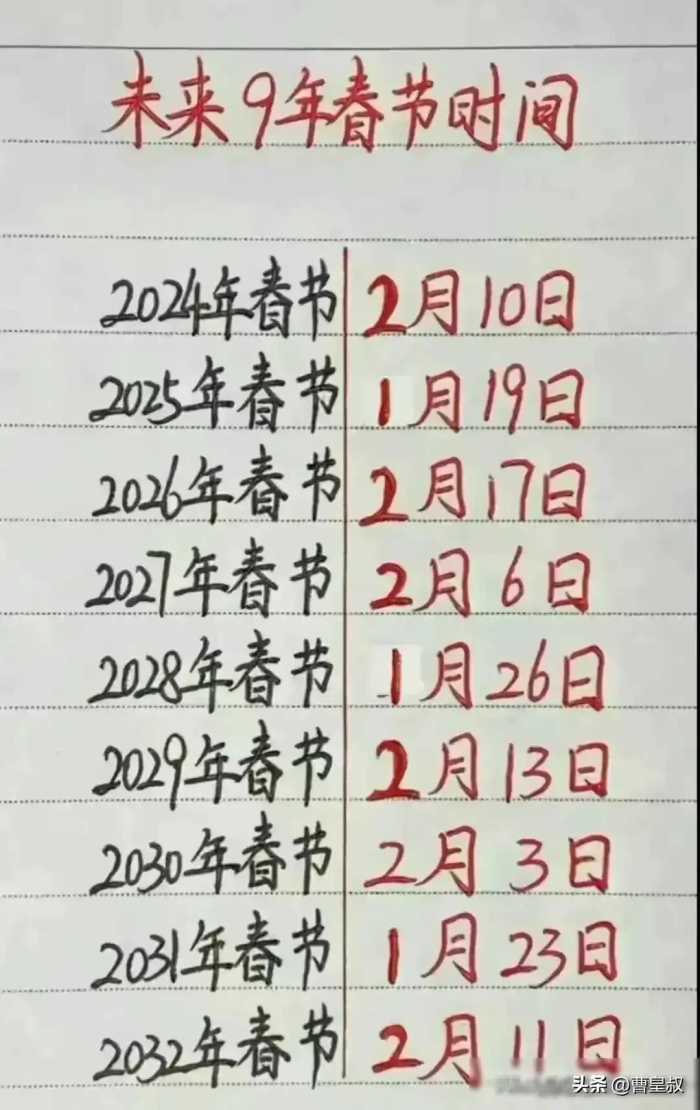 未来9年春节时间
2024年春节 2月10日
2025年春节 1月19日
2026年春节 2月17日
2027年春节 2月6日
2028年春节 1月26日
2029年春节 2月13日
2030年春节 2月3日
2031年春节 1月23日
2032年春节 2月11日
头条 @曹皇叔